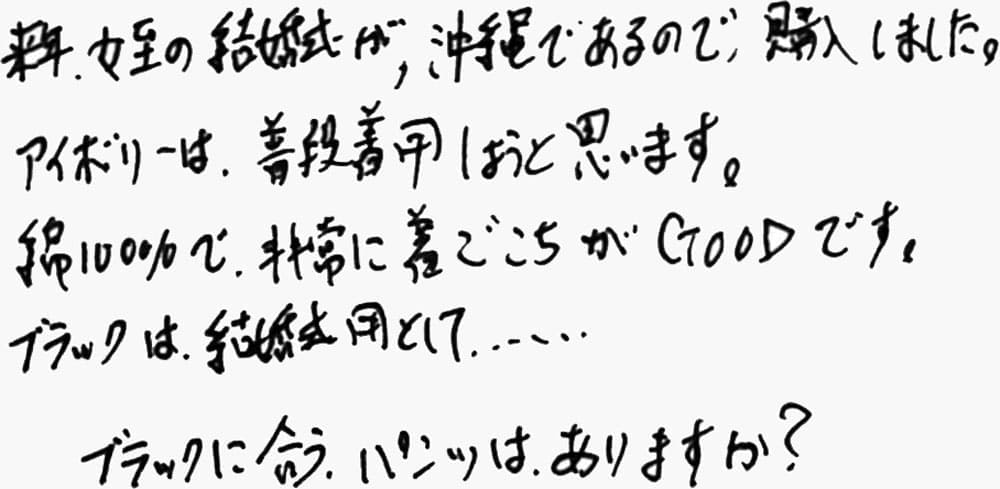 来年、女姪の結婚式が、沖縄であるので、購入しました。
アイボリーは、普段着用しようと思います。
綿100%で、非常に着ごこちがGOODです。
ブラックは、結婚式用として……
ブラックに合う、パンツは、ありますか?